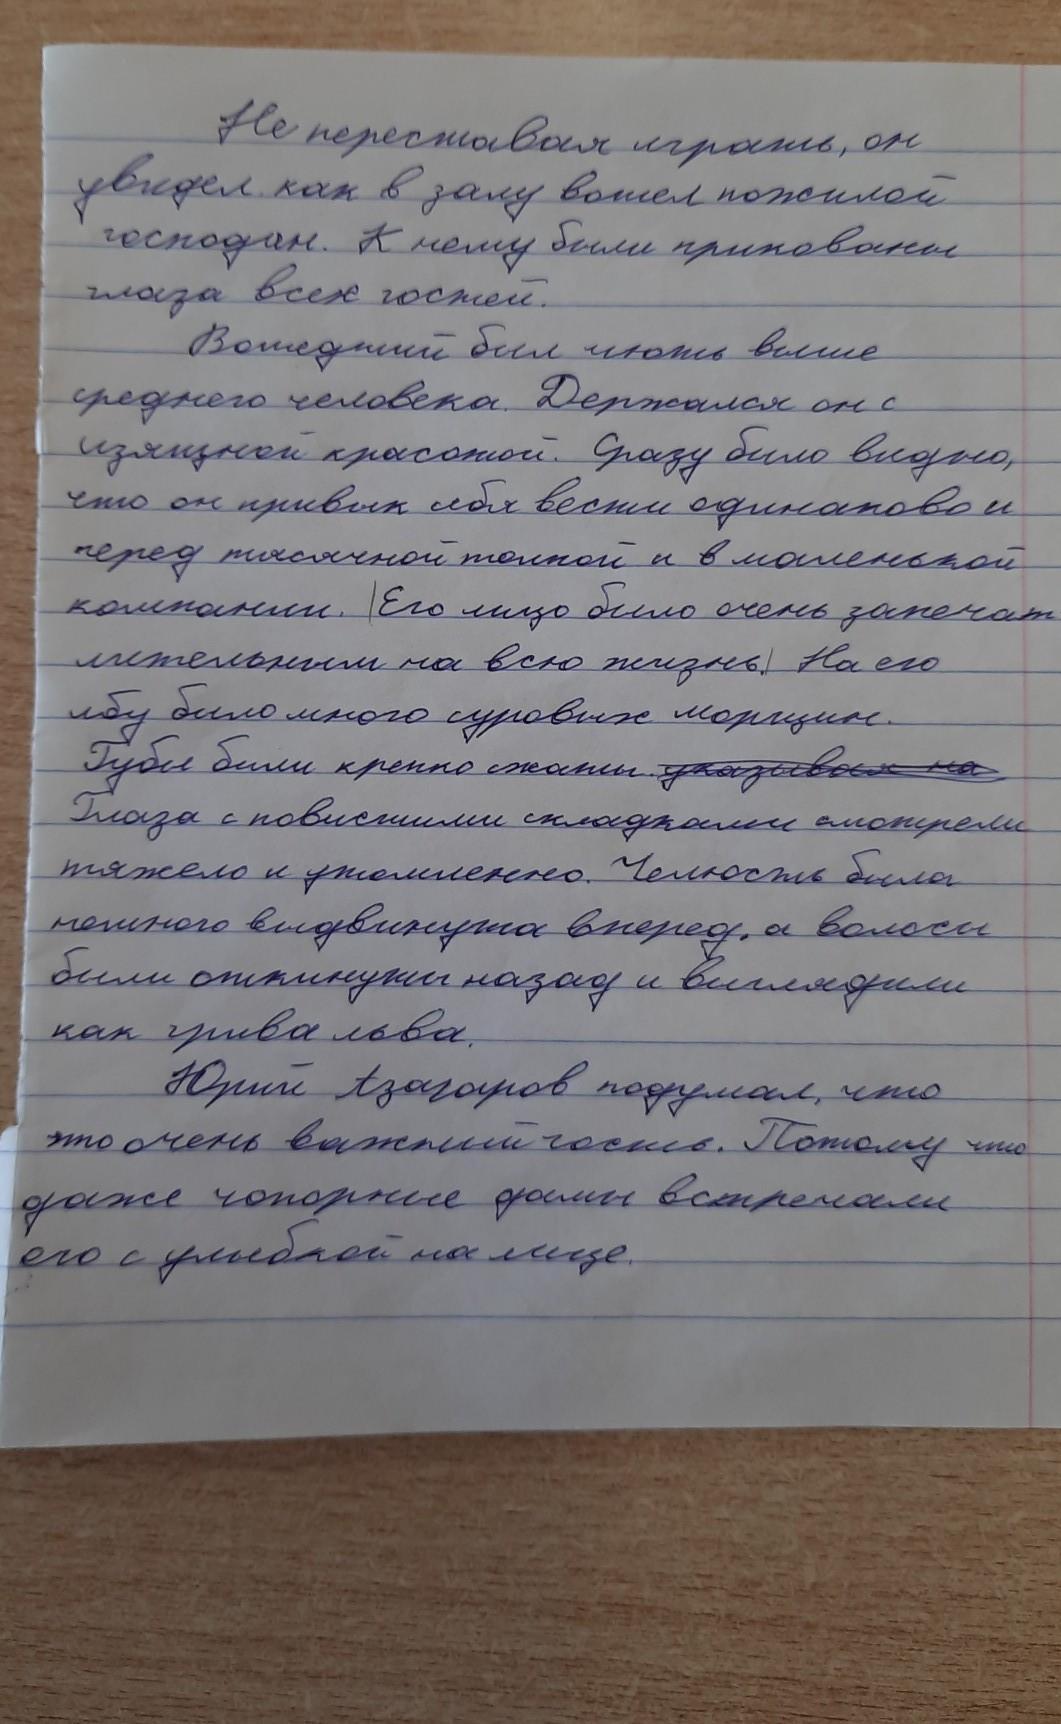 Не переставая играть, он
увидел как в залу вошел пожилой
господин. К нему были прикованы
глаза всех гостей.
Вошедший был чють выше
среднего человека. Держался он с
изящной красотой. Сразу было видно,
что он привык себя вести одинаково и
перед тысячной толпой и в маленькой
компании. Его лицо было очень запечат
лительным на всю жизнь. На его
лбу было много суровых морщин.
Губы были крепко сжаты. указывая на
Глаза с повисшими складками смотрели
тяжело и утомленно. Челюсть была
немного выдвинута вперед, а волосы
были откинуты назад и выглядили
как грива льва.
Юрий Азагаров подумал, что
это очень важный гость. Потому что
даже чопорные дамы встречали
его с улыбкой на лице.